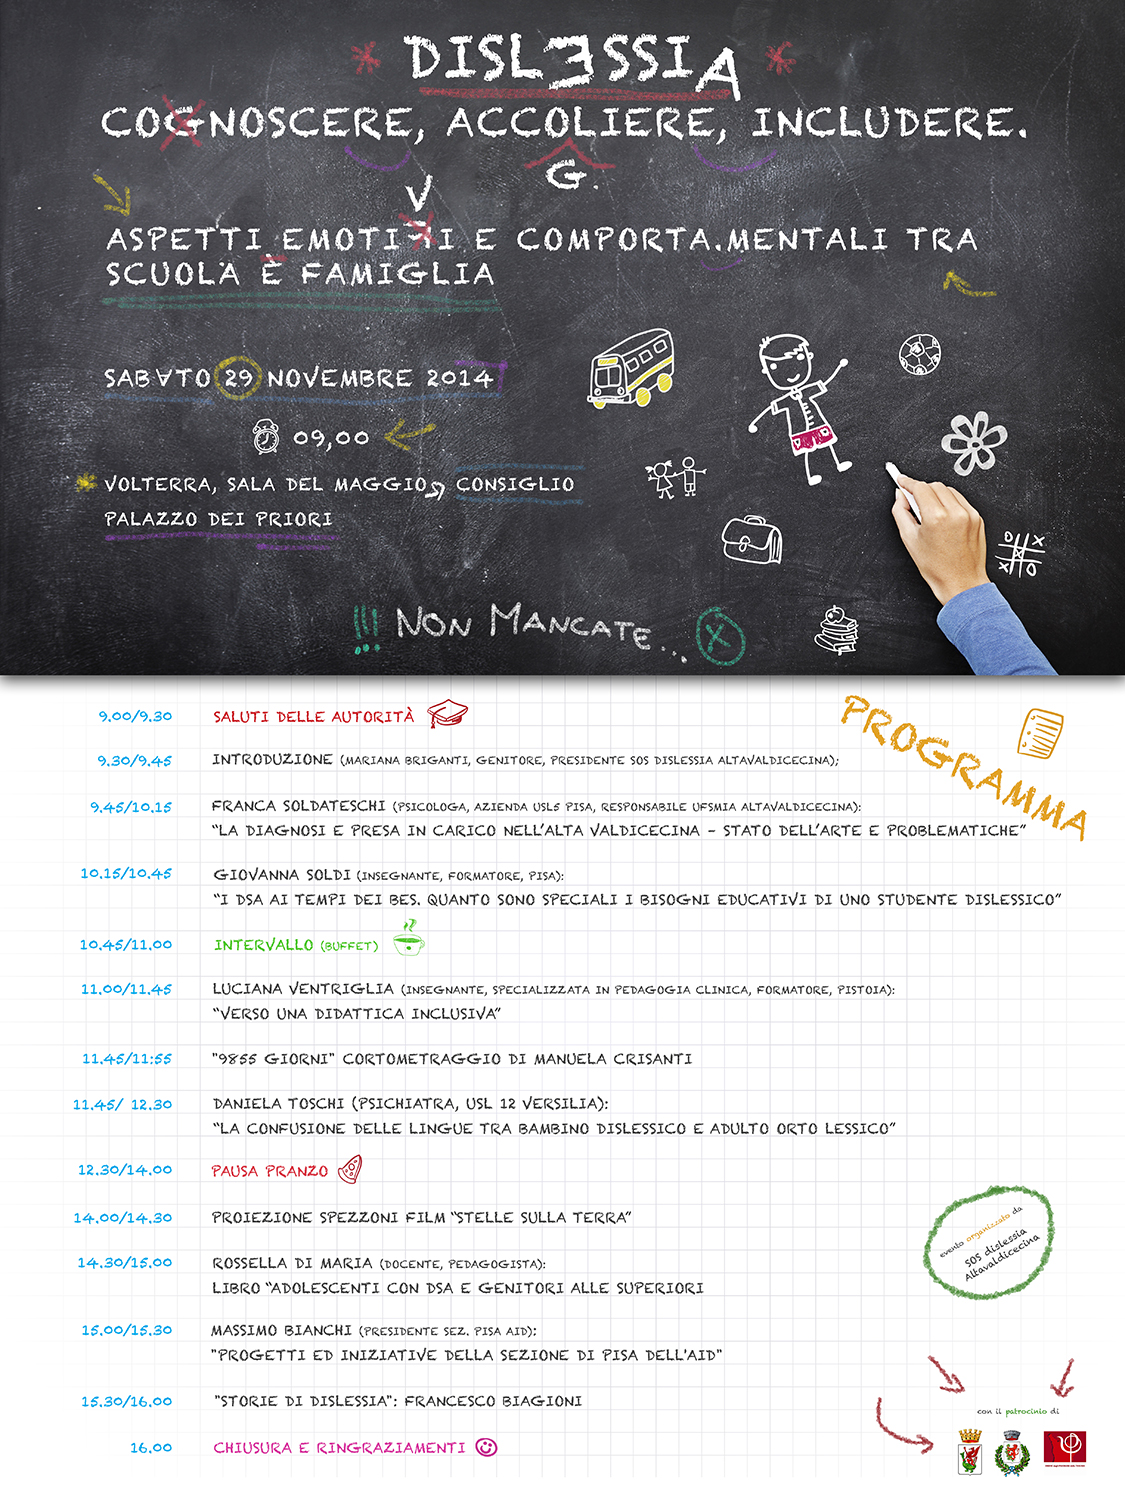 DISLESSIA
COGNOSCERE, ACCOLIERE, INCLUDERE.
G.
V
ASPETTI EMOTI I E COMPORTA.MENTALI TRA
SCUOLA È FAMIGLIA
SABATO 29 NOVEMBRE 2014
09,00
VOLTERRA, SALA DEL MAGGIO CONSIGLIO
PALAZZO DEI PRIORI
!!! NON MANCATE... X
PROGRAMMA
9.00/9.30 SALUTI DELLE AUTORITÀ
9.30/9.45 INTRODUZIONE (MARIANA BRIGANTI, GENITORE, PRESIDENTE SOS DISLESSIA ALTAVALDICECINA);
9.45/10.15 FRANCA SOLDATESCHI (PSICOLOGA, AZIENDA USL5 PISA, RESPONSABILE UFSMIA ALTAVALDICECINA):
"LA DIAGNOSI E PRESA IN CARICO NELL'ALTA VALDICECINA - STATO DELL'ARTE E PROBLEMATICHE"
10.15/10.45 GIOVANNA SOLDI (INSEGNANTE, FORMATORE, PISA):
"I DSA AI TEMPI DEI BES. QUANTO SONO SPECIALI I BISOGNI EDUCATIVI DI UNO STUDENTE DISLESSICO"
10.45/11.00 INTERVALLO (BUFFET)
11.00/11.45 LUCIANA VENTRIGLIA (INSEGNANTE, SPECIALIZZATA IN PEDAGOGIA CLINICA, FORMATORE, PISTOIA):
"VERSO UNA DIDATTICA INCLUSIVA"
11.45/11:55 "9855 GIORNI" CORTOMETRAGGIO DI MANUELA CRISANTI
11.45/ 12.30 DANIELA TOSCHI (PSICHIATRA, USL 12 VERSILIA):
"LA CONFUSIONE DELLE LINGUE TRA BAMBINO DISLESSICO E ADULTO ORTO LESSICO"
12.30/14.00 PAUSA PRANZO
14.00/14.30 PROIEZIONE SPEZZONI FILM "STELLE SULLA TERRA"
14.30/15.00 ROSSELLA DI MARIA (DOCENTE, PEDAGOGISTA):
LIBRO "ADOLESCENTI CON DSA E GENITORI ALLE SUPERIORI
15.00/15.30 MASSIMO BIANCHI (PRESIDENTE SEZ. PISA AID):
"PROGETTI ED INIZIATIVE DELLA SEZIONE DI PISA DELL'AID"
15.30/16.00 "STORIE DI DISLESSIA": FRANCESCO BIAGIONI
16.00 CHIUSURA E RINGRAZIAMENTI
evento organizzato da
SOS dislessia
Altavaldicecina
con il patrocinio di